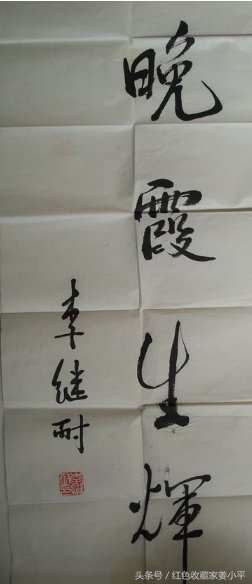 晚霞生輝
李继耐
头条号／红色收藏家姜小平